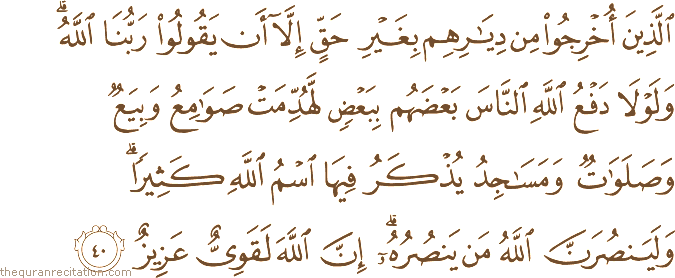 ٱلَّذِينَ أُخْرِجُوا۟ مِن دِيَـٰرِهِم بِغَيْرِ حَقٍّ إِلَّآ أَن يَقُولُوا۟ رَبُّنَا ٱللَّهُ ۗ
وَلَوْلَا دَفْعُ ٱللَّهِ ٱلنَّاسَ بَعْضَهُم بِبَعْضٍ لَّهُدِّمَتْ صَوَٰمِعُ وَبِيَعٌ
وَصَلَوَٰتٌ وَمَسَـٰجِدُ يُذْكَرُ فِيهَا ٱسْمُ ٱللَّهِ كَثِيرًا ۗ
وَلَيَنصُرَنَّ ٱللَّهُ مَن يَنصُرُهُۥٓ ۗ إِنَّ ٱللَّهَ لَقَوِىٌّ عَزِيزٌ ٤٠
thequranrecitation.com